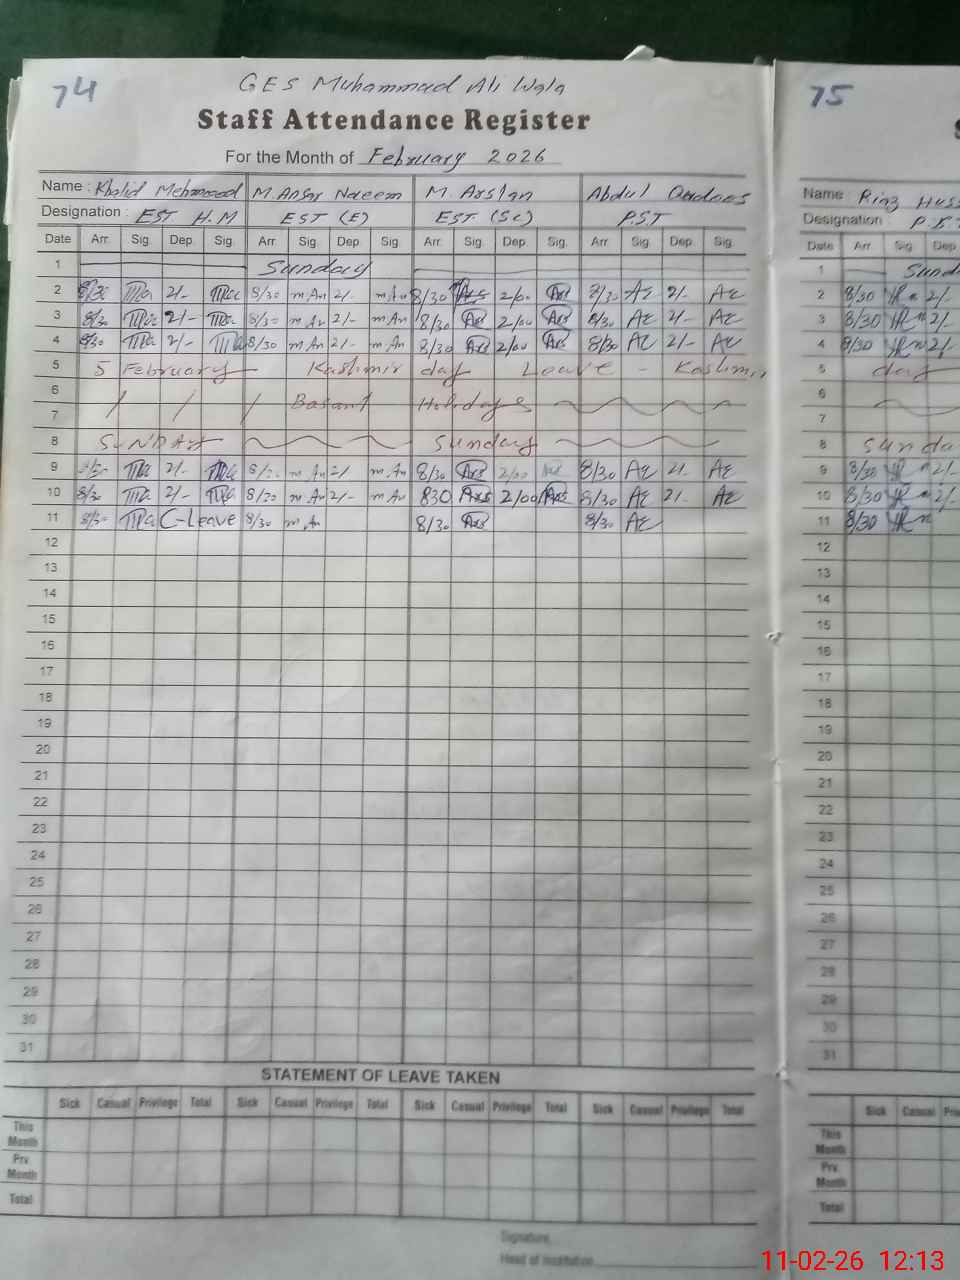 74
GES Muhammad Ali Wala
Staff Attendance Register
For the Month of February 2026
Name : Khalid Mehmood M. Ansar Naeem M. Arslan Abdul Quddoos
Designation : EST H.M EST (E) EST (Sc) P.S.T
Date Arr. Sig. Dep. Sig. Arr. Sig. Dep. Sig. Arr. Sig. Dep. Sig. Arr. Sig. Dep. Sig.
1 Sunday
2 8/30 2/- 8/30 m An 2/- m An 8/30 Ars 2/00 Ars 8/30 2/-
3 8/30 2/- 8/30 m An 2/- m An 8/30 Ars 2/00 Ars 8/30 2/-
4 8/30 2/- 8/30 m An 2/- m An 8/30 Ars 2/00 Ars 8/30 2/-
5 5 February Kashmir day Leave - Kashmir
6
7 Basant Holidays
8 SUNDAY Sunday
9 8/30 2/- m An 2/- m An 8/30 Ars 2/00 8/30 2/-
10 8/30 2/- 8/30 m An 2/- m An 830 Ars 2/00 Ars 8/30 2/-
11 8/30 C-Leave 8/30 m An 8/30 Ars 8/30
12
13
14
15
16
17
18
19
20
21
22
23
24
25
26
27
28
29
30
31
STATEMENT OF LEAVE TAKEN
Sick Casual Privilege Total Sick Casual Privilege Total Sick Casual Privilege Total Sick Casual Privilege Total
This Month
Prv. Month
Total
Signature
Head of Institution
75
S
Name : Riaz Huss
Designation P.S.T
Date Arr. Sig. Dep.
1 Sund
2 8/30 2/-
3 8/30 2/-
4 8/30 2/-
5 day
6
7
8 Sunda
9 8/30 2/-
10 8/30 2/-
11 8/30
12
13
14
15
16
17
18
19
20
21
22
23
24
25
26
27
28
29
30
31
Sick Casual Pri
This Month
Prv. Month
Total
11-02-26 12:13